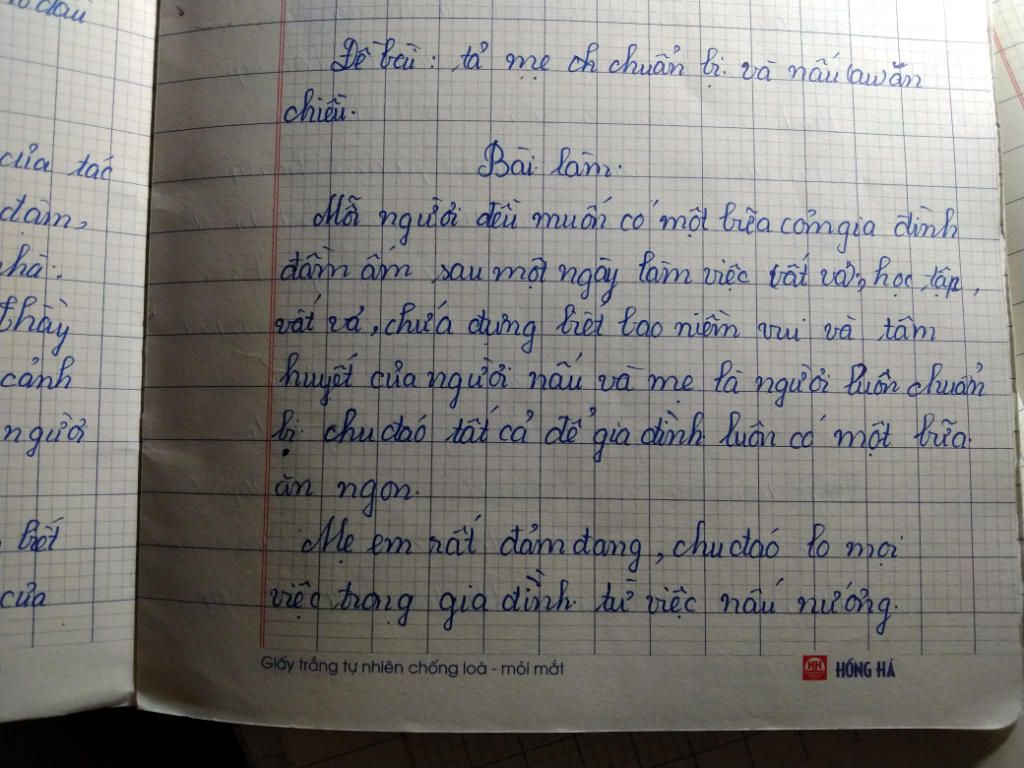 của tác
đạm,
hà.
thầy
cảnh
người
biết
của
Đề bài: tả mẹ ch chuẩn bị và nấu ăn
chiều.
Bài làm.
Mỗi người đều muốn có một bữa cơm gia đình
đầm ấm sau một ngày làm việc vất vả, học tập,
vất vả, chứa đựng biết bao niềm vui và tâm
huyết của người nấu và mẹ là người luôn chuẩn
bị chu đáo tất cả để gia đình luôn có một bữa
ăn ngon.
Mẹ em rất đảm đang, chu đáo lo mọi
việc trong gia đình từ việc nấu nướng.
Giấy trắng tự nhiên chống loá - mỏi mắt
HH HỒNG HÀ